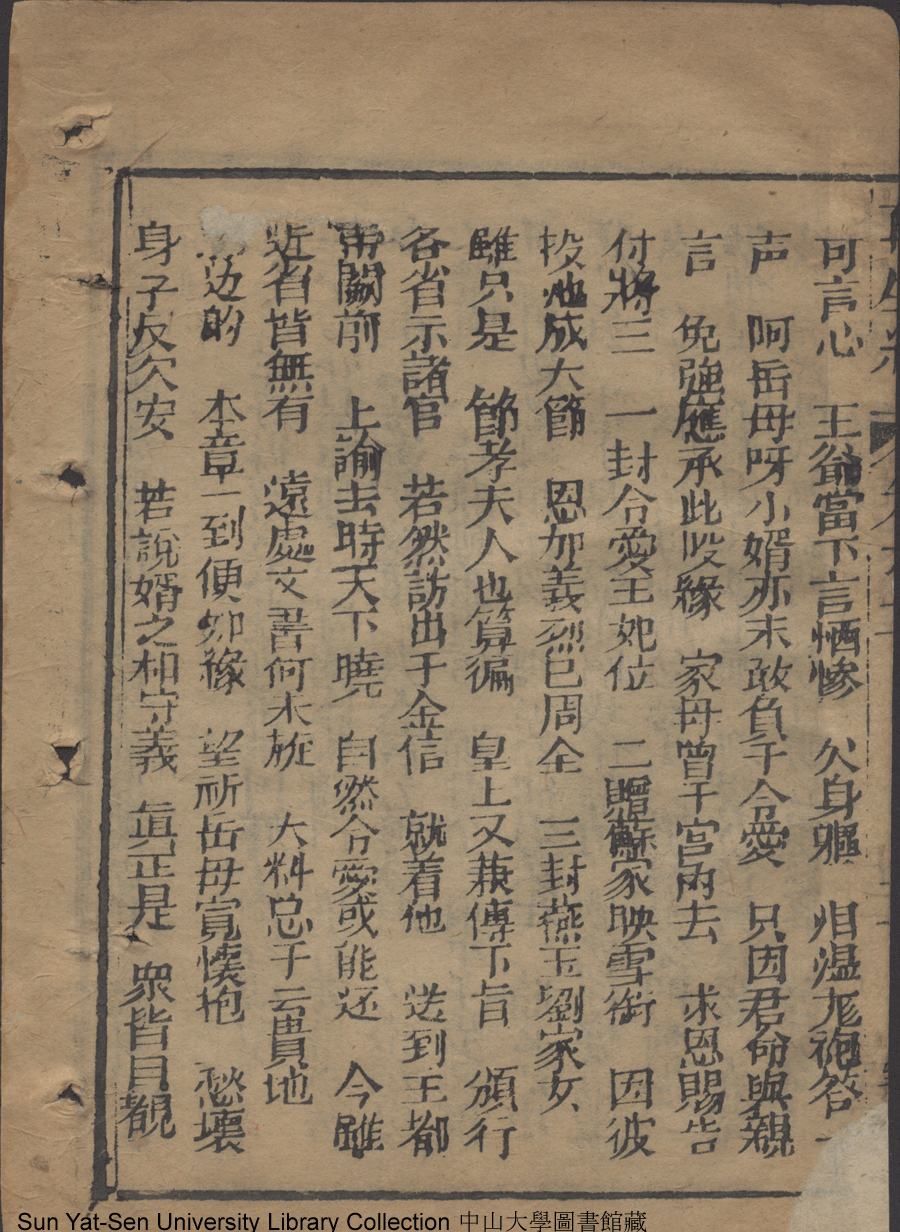 可言心　王爺當下言恓慘　欠身軀　泪温尨袍答一
声　阿岳母呀小婿亦未敢負于令愛　只因君命與親
言　免強應承此段緣　家母曾于宮內去　求恩賜告
付將三　一封令愛王妃位　二贈蘇家映雪銜　因彼
投池成大節　恩加義烈已周全　三封燕玉劉家女
雖只是　節孝夫人也算徧　皇上又兼傳下旨　頒行
各省示諸官　若然訪出于金信　就着他　送到王都
帝闕前　上諭去時天下曉　自然令愛或能还　今雖
近省皆無有　遠處文書何未旋　大料总于云貴地
边的　本章一到便知緣　望祈岳母寬懷抱　愁壞
身子反欠安　若說婿之相守義　真正是　眾皆目覩
再生緣
Sun Yat-Sen University Library Collection 中山大學圖書館藏